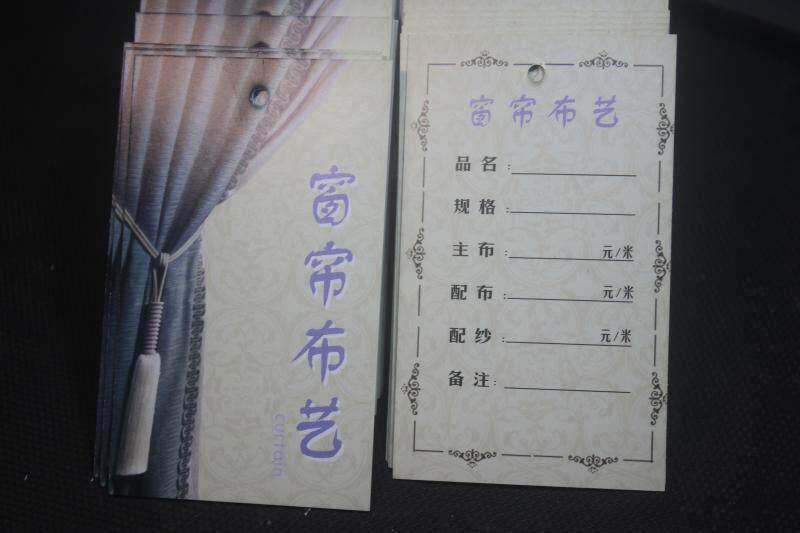 窗帘布艺
curtain
窗帘布艺
品名：
规格：
主布：元/米
配布：元/米
配纱：元/米
备注：